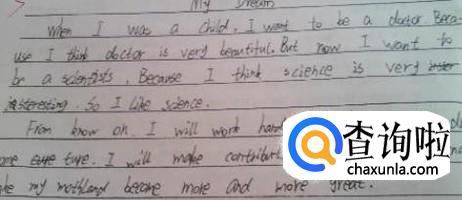 My Dream
When I was a child, I want to be a doctor. Beca-
use I think doctor is very beautiful. But now I want to
be a scientists. Because I think science is very
interesting. So I like science.
From know on. I will work hard
ture. I will make contribut
my mothland become more and more great.
查询啦
chaxunla.com